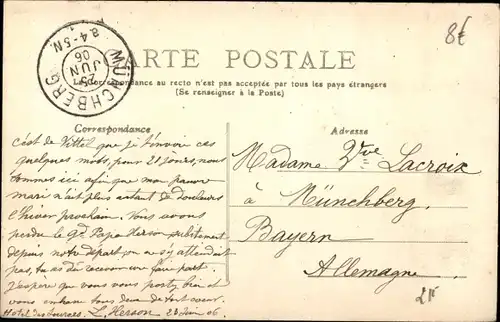 8€
MÜNCHBERG
25
JUN
06
8 4-5N.
CARTE POSTALE
La Correspondance au recto n'est pas acceptée par tous les pays étrangers
(Se renseigner à la Poste)
Correspondance
Adresse
c'est de Vittel que je t'envoie ces
quelques mots, pour 21 jours, nous
sommes ici afin que mon pauvre
mari n'ait plus autant de douleurs
l'hiver prochain. Vous avons
perdu le Gd Papa Herson subitement
depuis notre départ on ne s'y attendait
pas, tu as dû recevoir un faire part.
J'espère que vous vous portez bien et
vous embrasse tous deux de tout cœur.
Hotel des Sources. L. Herson 23 Juin 06
Madame Vve Lacroix
à Münchberg.
Bayern
Allemagne